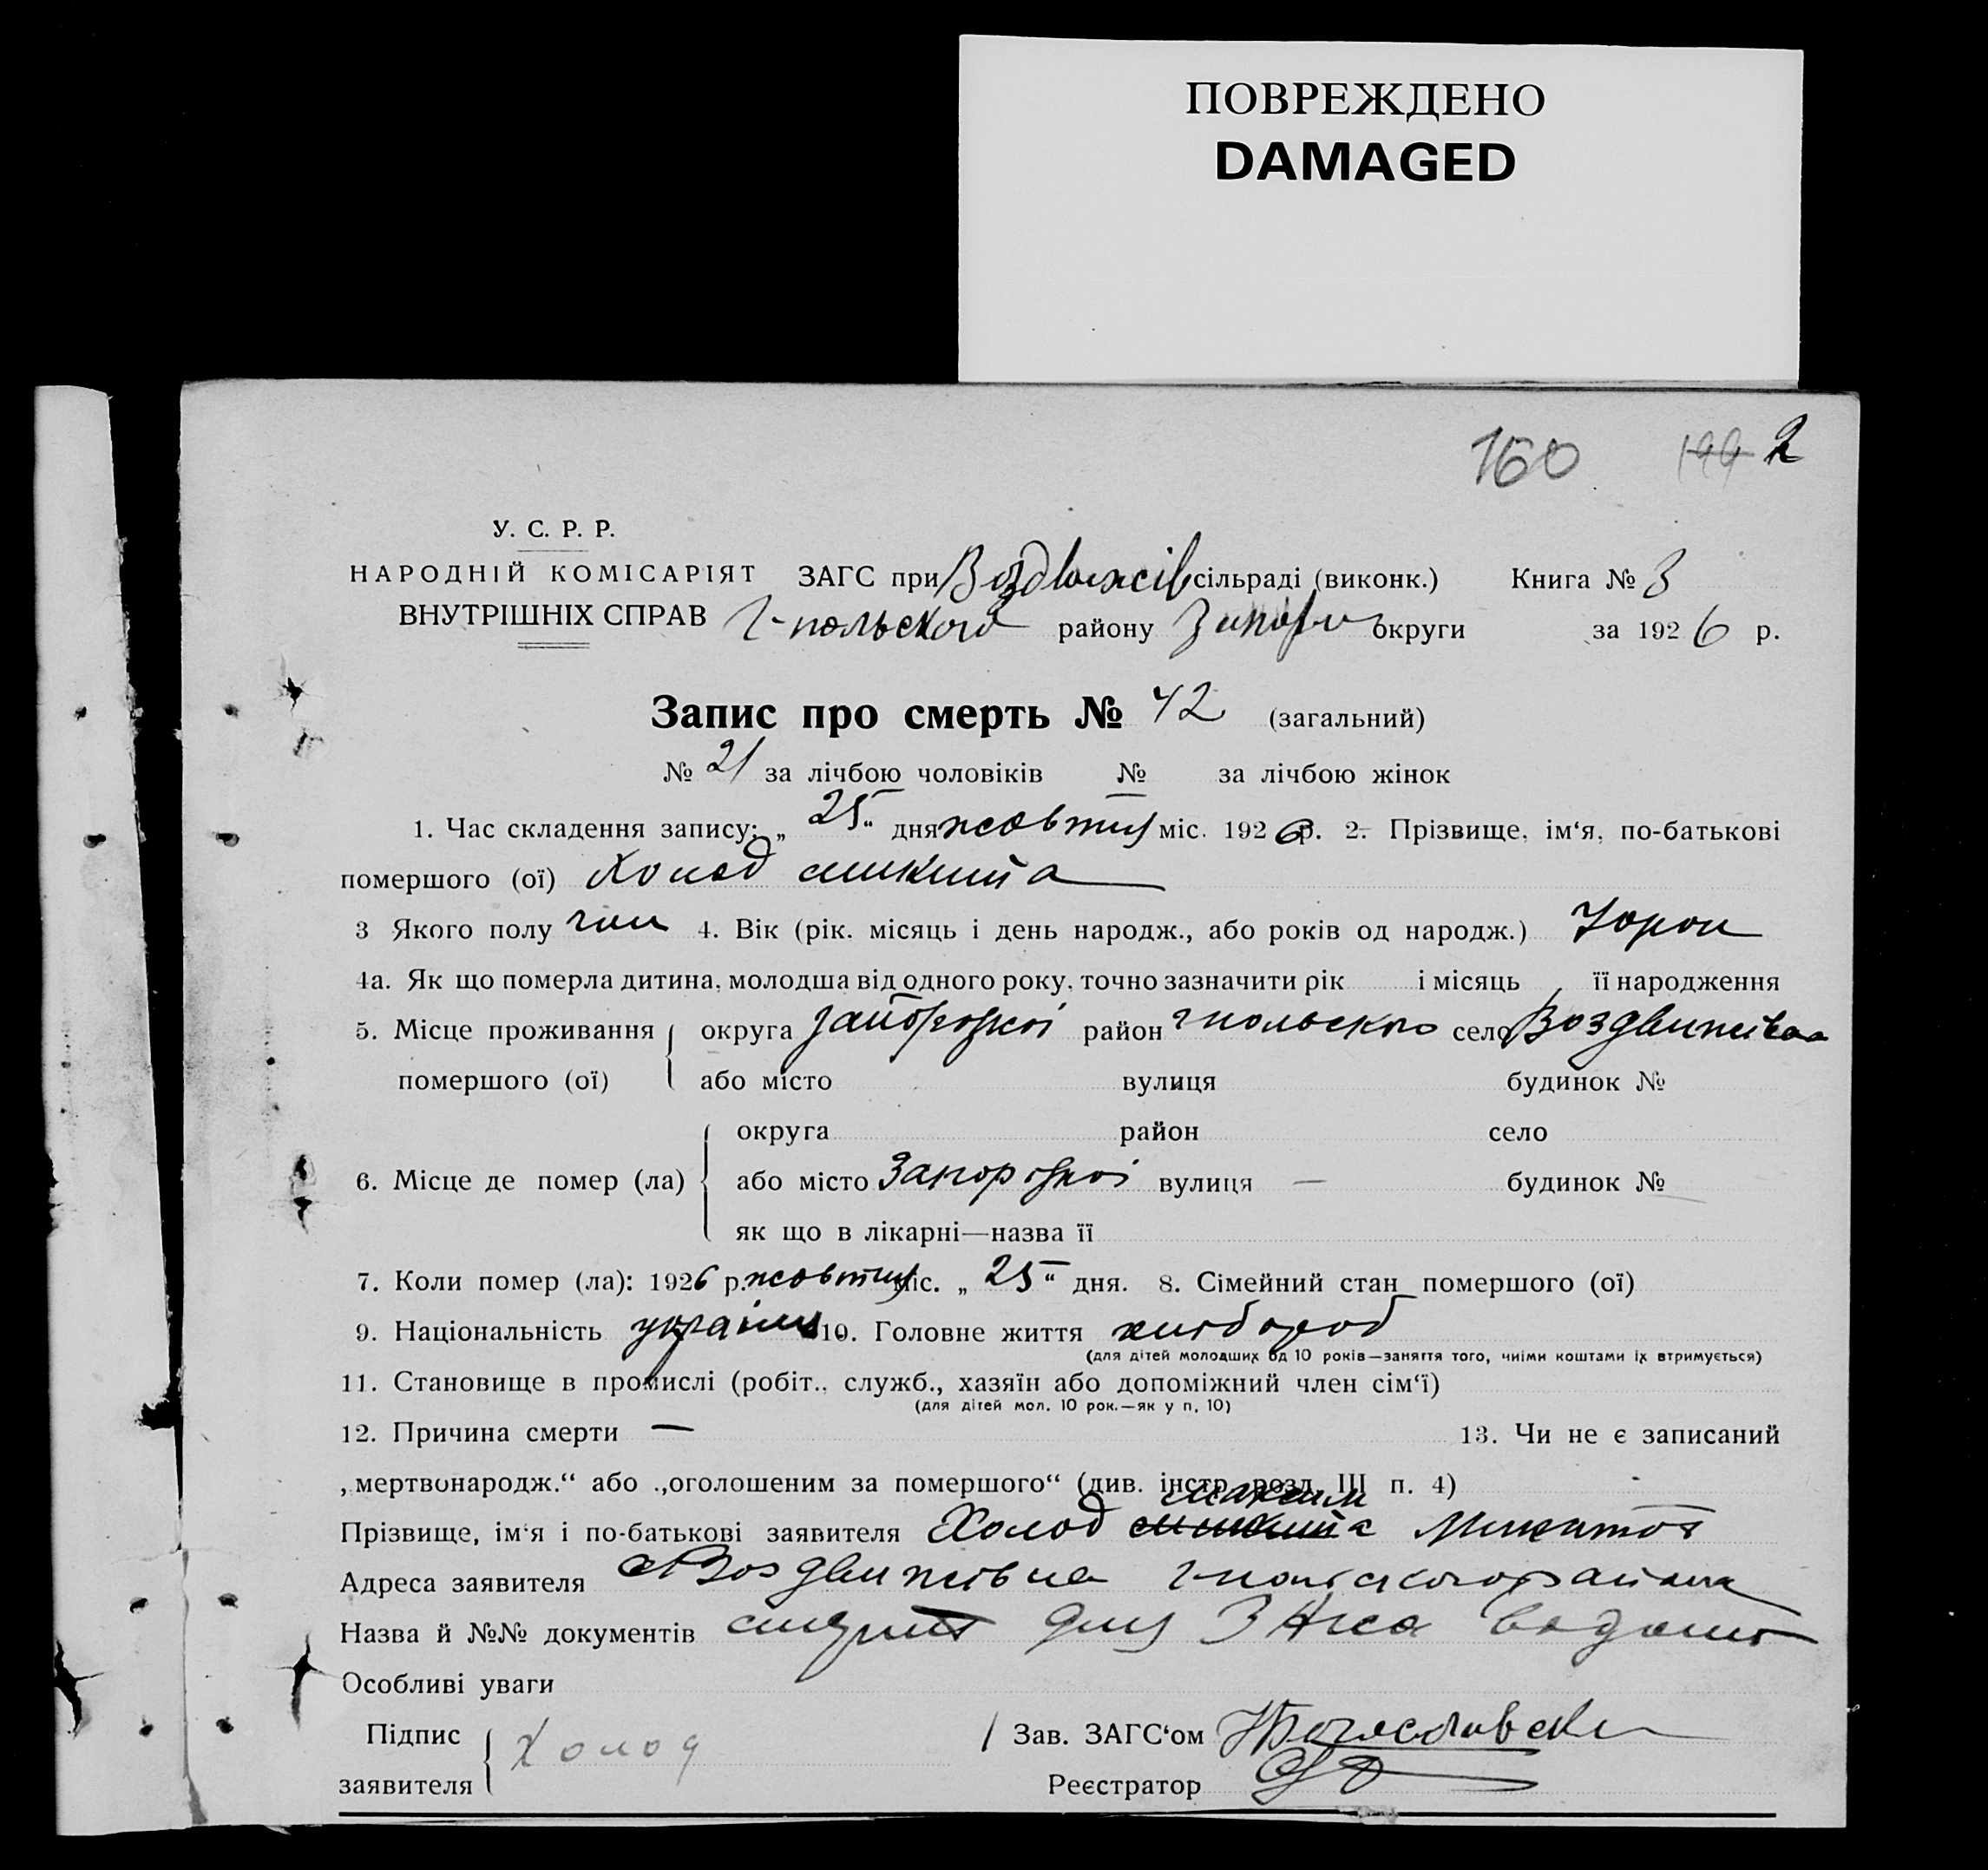 ПОВРЕЖДЕНО
DAMAGED
160 199 2
У. С. Р. Р.
НАРОДНІЙ КОМІСАРІЯТ ЗАГС при Воздвижів сільраді (виконк.) Книга № 3
ВНУТРІШНІХ СПРАВ Г-польского району Запор округи за 1926 р.
Запис про смерть № 42 (загальний)
№ 21 за лічбою чоловіків № за лічбою жінок
1. Час складення запису: „25“ дня жовтня міс. 1926 р. 2. Прізвище, ім‘я, по-батькові
помершого (ої) Холод микита
3 Якого полу чол 4. Вік (рік, місяць і день народж., або років од народж.)
4а. Як що померла дитина, молодша від одного року, точно зазначити рік і місяць її народження
5. Місце проживання округа Запорозкоі район гпольского село Воздвижівка
помершого (ої) або місто вулиця будинок №
округа район село
6. Місце де помер (ла) або місто Запорозкоі вулиця — будинок №
як що в лікарні—назва її
7. Коли помер (ла): 1926 р. жовтня міс. „25“ дня. 8. Сімейний стан помершого (ої)
9. Національність україн 10. Головне життя хлібороб
(для дітей молодших од 10 років—заняття того, чиїми коштами їх втримується)
11. Становище в промислі (робіт., служб., хазяїн або допоміжний член сім‘ї)
(для дітей мол. 10 рок.—як у п. 10)
12. Причина смерти — 13. Чи не є записаний
„мертвонародж.“ або „оголошеним за помершого“ (див. інстр. розд. III п. 4)
максим
Прізвище, ім‘я і по-батькові заявителя Холод микита Микитов
Адреса заявителя Воздвижівка г-польского района
Назва й №№ документів для ЗАгса
Особливі уваги
Підпис Холод Зав. ЗАГС‘ом
заявителя Реєстратор